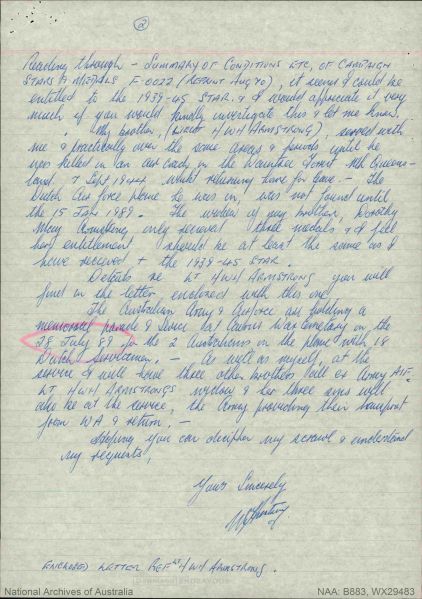 ②
Reading through - SUMMARY OF CONDITIONS ETC, OF CAMPAIGN
STARS & MEDALS F-0022 (REPRINT AUG 70), it seems I could be
entitled to the 1939-45 STAR. & I would appreciate it very
much if you would kindly investigate this & let me know.
My brother, (LIEUT HWH ARMSTRONG), served with
me & practically over the same areas & periods until he
was killed in an air crash in the Daintree Forest Nth Queens-
land. 7 Sept 1944 whilst returning home for leave. - The
Dutch Air force plane he was in, was not found until
the 15 Jan 1989. The widow of my brother, Dorothy
May Armstrong only received three medals & I feel
her entitlement should be at least the same as I
have received + the 1939-45 STAR.
Details re LT HWH ARMSTRONG you will
find in the letter enclosed with this one.
The Australian Army & Airforce are holding a
memorial parade & service at Cairns War cemetery on the
28 July 89 for the 2 Australians on the plane with 18
Dutch Servicemen. - As well as myself, at the
service I will have three other brothers all ex Army AIF.
LT HWH ARMSTRONGS widow & her three sons will
also be at the service, the Army providing their transport
from WA & return. -
Hoping you can decipher my scrawl & understand
my requests,
Yours Sincerely
ENCLOSED LETTER REF LT HWH ARMSTRONG.
National Archives of Australia
NAA: B883, WX29483